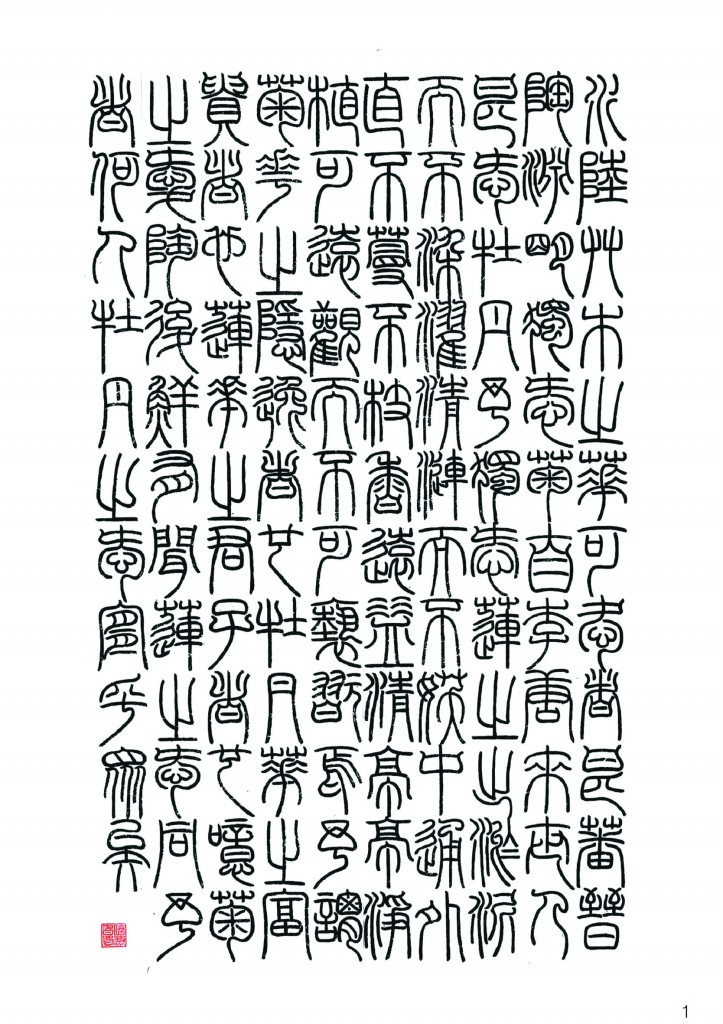 水陸艸木之華可愛者甚蕃晉
陶淵明獨愛菊自李唐來世人
甚愛牡丹予獨愛蓮之出淤泥
而不染濯清漣而不妖中通外
直不蔓不枝香遠益清亭亭淨
植可遠觀而不可褻翫焉予謂
菊華之隱逸者也牡丹華之富
貴者也蓮華之君子者也噫菊
之愛陶後鮮有聞蓮之愛同予
者何人牡丹之愛宜乎眾矣
1